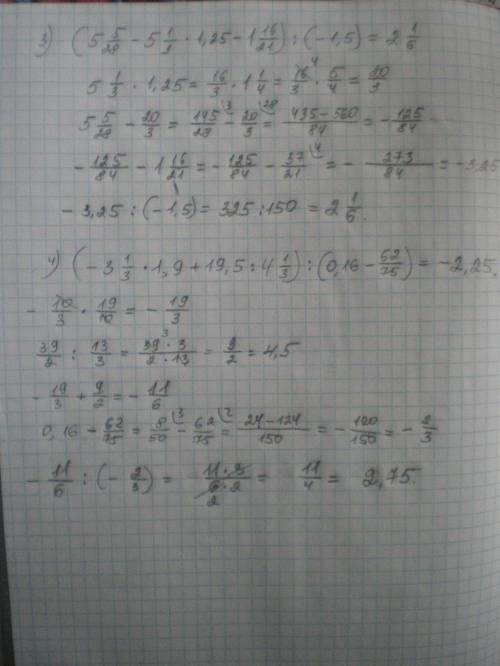 3) (5 5/28 - 5 1/3 · 1,25 - 1 16/21) : (-1,5) = 2 1/6
5 1/3 · 1,25 = 16/3 · 1 1/4 = 16/3 4 · 5/4 = 20/3
5 5/28 - 20/3 = 145/28 3 - 20/3 28 = 435-560/84 = - 125/84
- 125/84 - 1 16/21 = - 125/84 - 37/21 4 = - 273/84 = -3,25
- 3,25 : (-1,5) = 325 : 150 = 2 1/6.
4) (-3 1/3 · 1,9 + 19,5 : 4 1/3) : (0,16 - 62/75) = -2,25.
- 10/3 · 19/10 = - 19/3
39/2 : 13/3 = 39 3 · 3/2 · 13 = 9/2 = 4,5
- 19/3 + 9/2 = - 11/6
0,16 - 62/75 = 8/50 3 - 62/75 2 = 24-124/150 = - 100/150 = - 2/3
- 11/6 : (- 2/3) = 11 · 3/6 · 2 2 = 11/4 = 2,75.